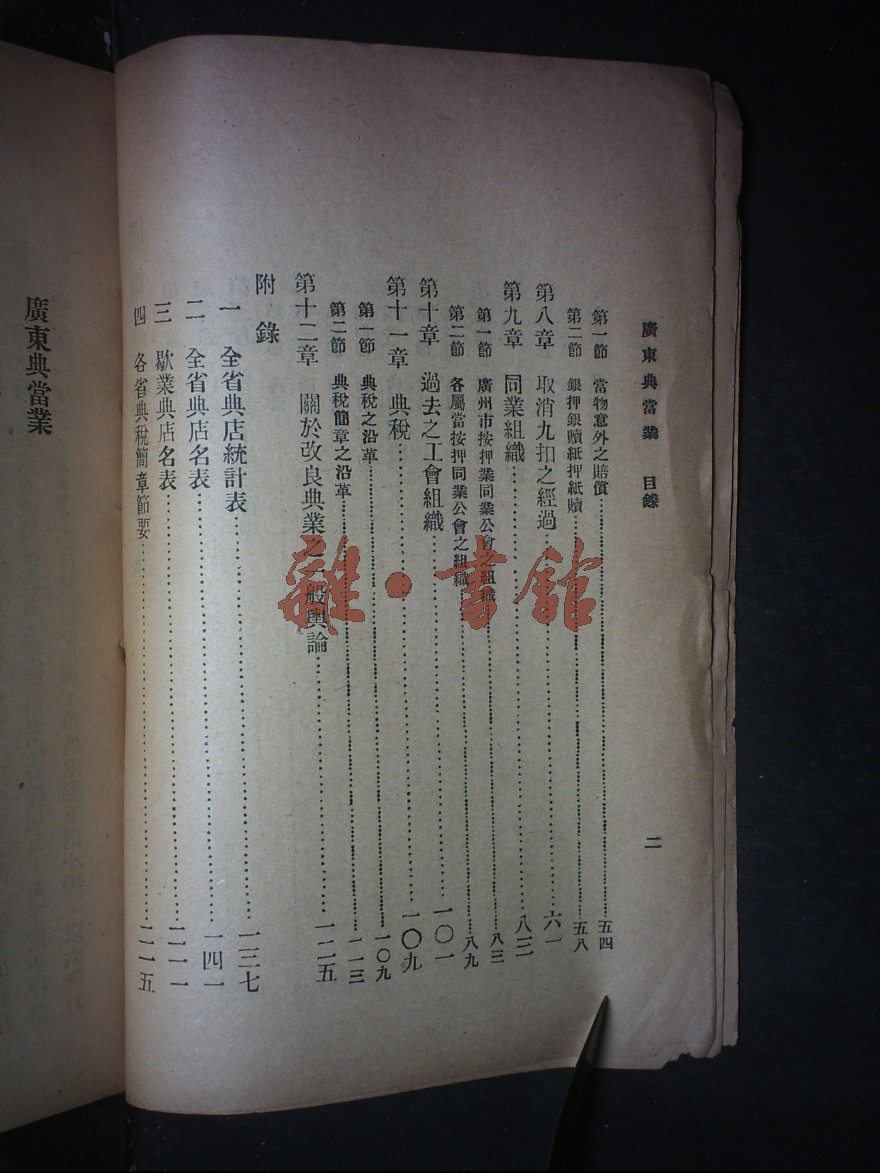 廣東典當業 目錄 二
第一節 當物意外之賠償 五四
第二節 銀押銀贖紙押紙贖 五八
第八章 取消九扣之經過 六一
第九章 同業組織 八三
第一節 廣州市按押業同業公會之組織 八三
第二節 各屬當按押同業公會之組織 八九
第十章 過去之工會組織 一〇一
第十一章 典稅 一〇九
第一節 典稅之沿革 一〇九
第二節 典稅簡章之沿革 一一三
第十二章 關於改良典業之一般輿論 一二五
附錄
一 全省典店統計表 一三七
二 全省典店名表 一四一
三 歇業典店名表 二一一
四 各省典稅簡章節要 二一五
廣東典當業
雜·書館